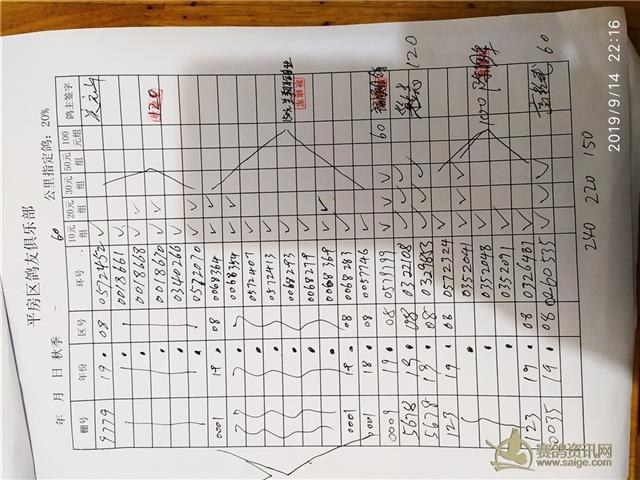 平房区鸽友俱乐部
年 月 日 秋季 60 公里指定鸽：20%
棚号 年份 区号 环号 10元组 20元组 30元组 50元组 100元组 鸽主签字
9779 19 08 0572452 ✓
0018661 ✓
0018668 ✓
0018670 ✓ ✓
0340266 ✓ ✓
0572070 ✓ ✓
0001 19 08 0068364 ✓ ✓ ✓
0068354 ✓ ✓
0572407 ✓
0572413 ✓
0068293 ✓
0068279 ✓
0068369 ✓ ✓
0001 19 08 0068283 ✓ ✓
0001 18 08 0057746 ✓ ✓ ✓
0009 19 08 ✓ ✓ ✓ 60
5678 19 08 0322108 ✓ ✓ ✓ 120
5678 19 08 ✓ ✓ ✓
123 19 08 0572324 ✓ ✓ ✓
0352041 ✓ ✓
0352048 ✓ 1000
0352091 ✓
123 19 08 0326401 ✓ ✓
0035 19 08 0260535 ✓ ✓ ✓ 60
240 220 150
2019/9/14 22:16
赛鸽资讯网
www.saige.com